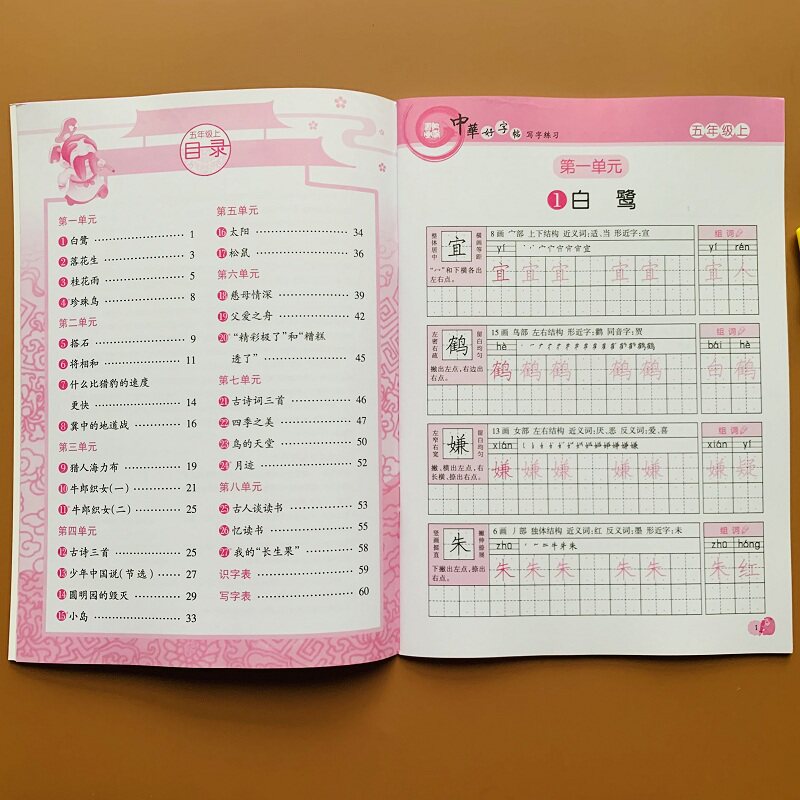 五年级上
目录
第一单元
1 白鹭 1
2 落花生 3
3 桂花雨 5
4 珍珠鸟 8
第二单元
5 搭石 9
6 将相和 11
7 什么比猎豹的速度
更快 14
8 冀中的地道战 16
第三单元
9 猎人海力布 19
10 牛郎织女(一) 21
11 牛郎织女(二) 25
第四单元
12 古诗三首 25
13 少年中国说(节选) 27
14 圆明园的毁灭 29
15 小岛 33
第五单元
16 太阳 34
17 松鼠 36
第六单元
18 慈母情深 39
19 父爱之舟 42
20 “精彩极了”和“糟糕
透了” 45
第七单元
21 古诗词三首 46
22 四季之美 47
23 鸟的天堂 50
24 月迹 52
第八单元
25 古人谈读书 53
26 忆读书 55
27 我的“长生果” 58
识字表 59
写字表 60
中華好字帖 写字练习
五年级上
第一单元
1 白鹭
整体居中 宜 横画等距
8画 宀部 上下结构 近义词:适、当 形近字:宣
yí
“宀”和下横各出左右点。
宜 宜 宜 宜 宜
组词
yí rén
宜 人
左密右疏 鹤 留白均匀
15画 鸟部 左右结构 形近字:鹳 同音字:贺
hè
撇出左点,右边出右点。
鹤 鹤 鹤 鹤 鹤
组词
bái hè
白 鹤
左窄右宽 嫌 留白均匀
13画 女部 左右结构 近义词:厌、恶 反义词:爱、喜
xián
撇、横出左点,右长横、捺出右点。
嫌 嫌 嫌 嫌 嫌
组词
xián yí
嫌 疑
竖画挺直 朱 撇捺伸展
6画 丿部 独体结构 近义词:红 反义词:墨 形近字:未
zhū
下撇出左点,捺出右点。
朱 朱 朱 朱 朱
组词
zhū hóng
朱 红
1